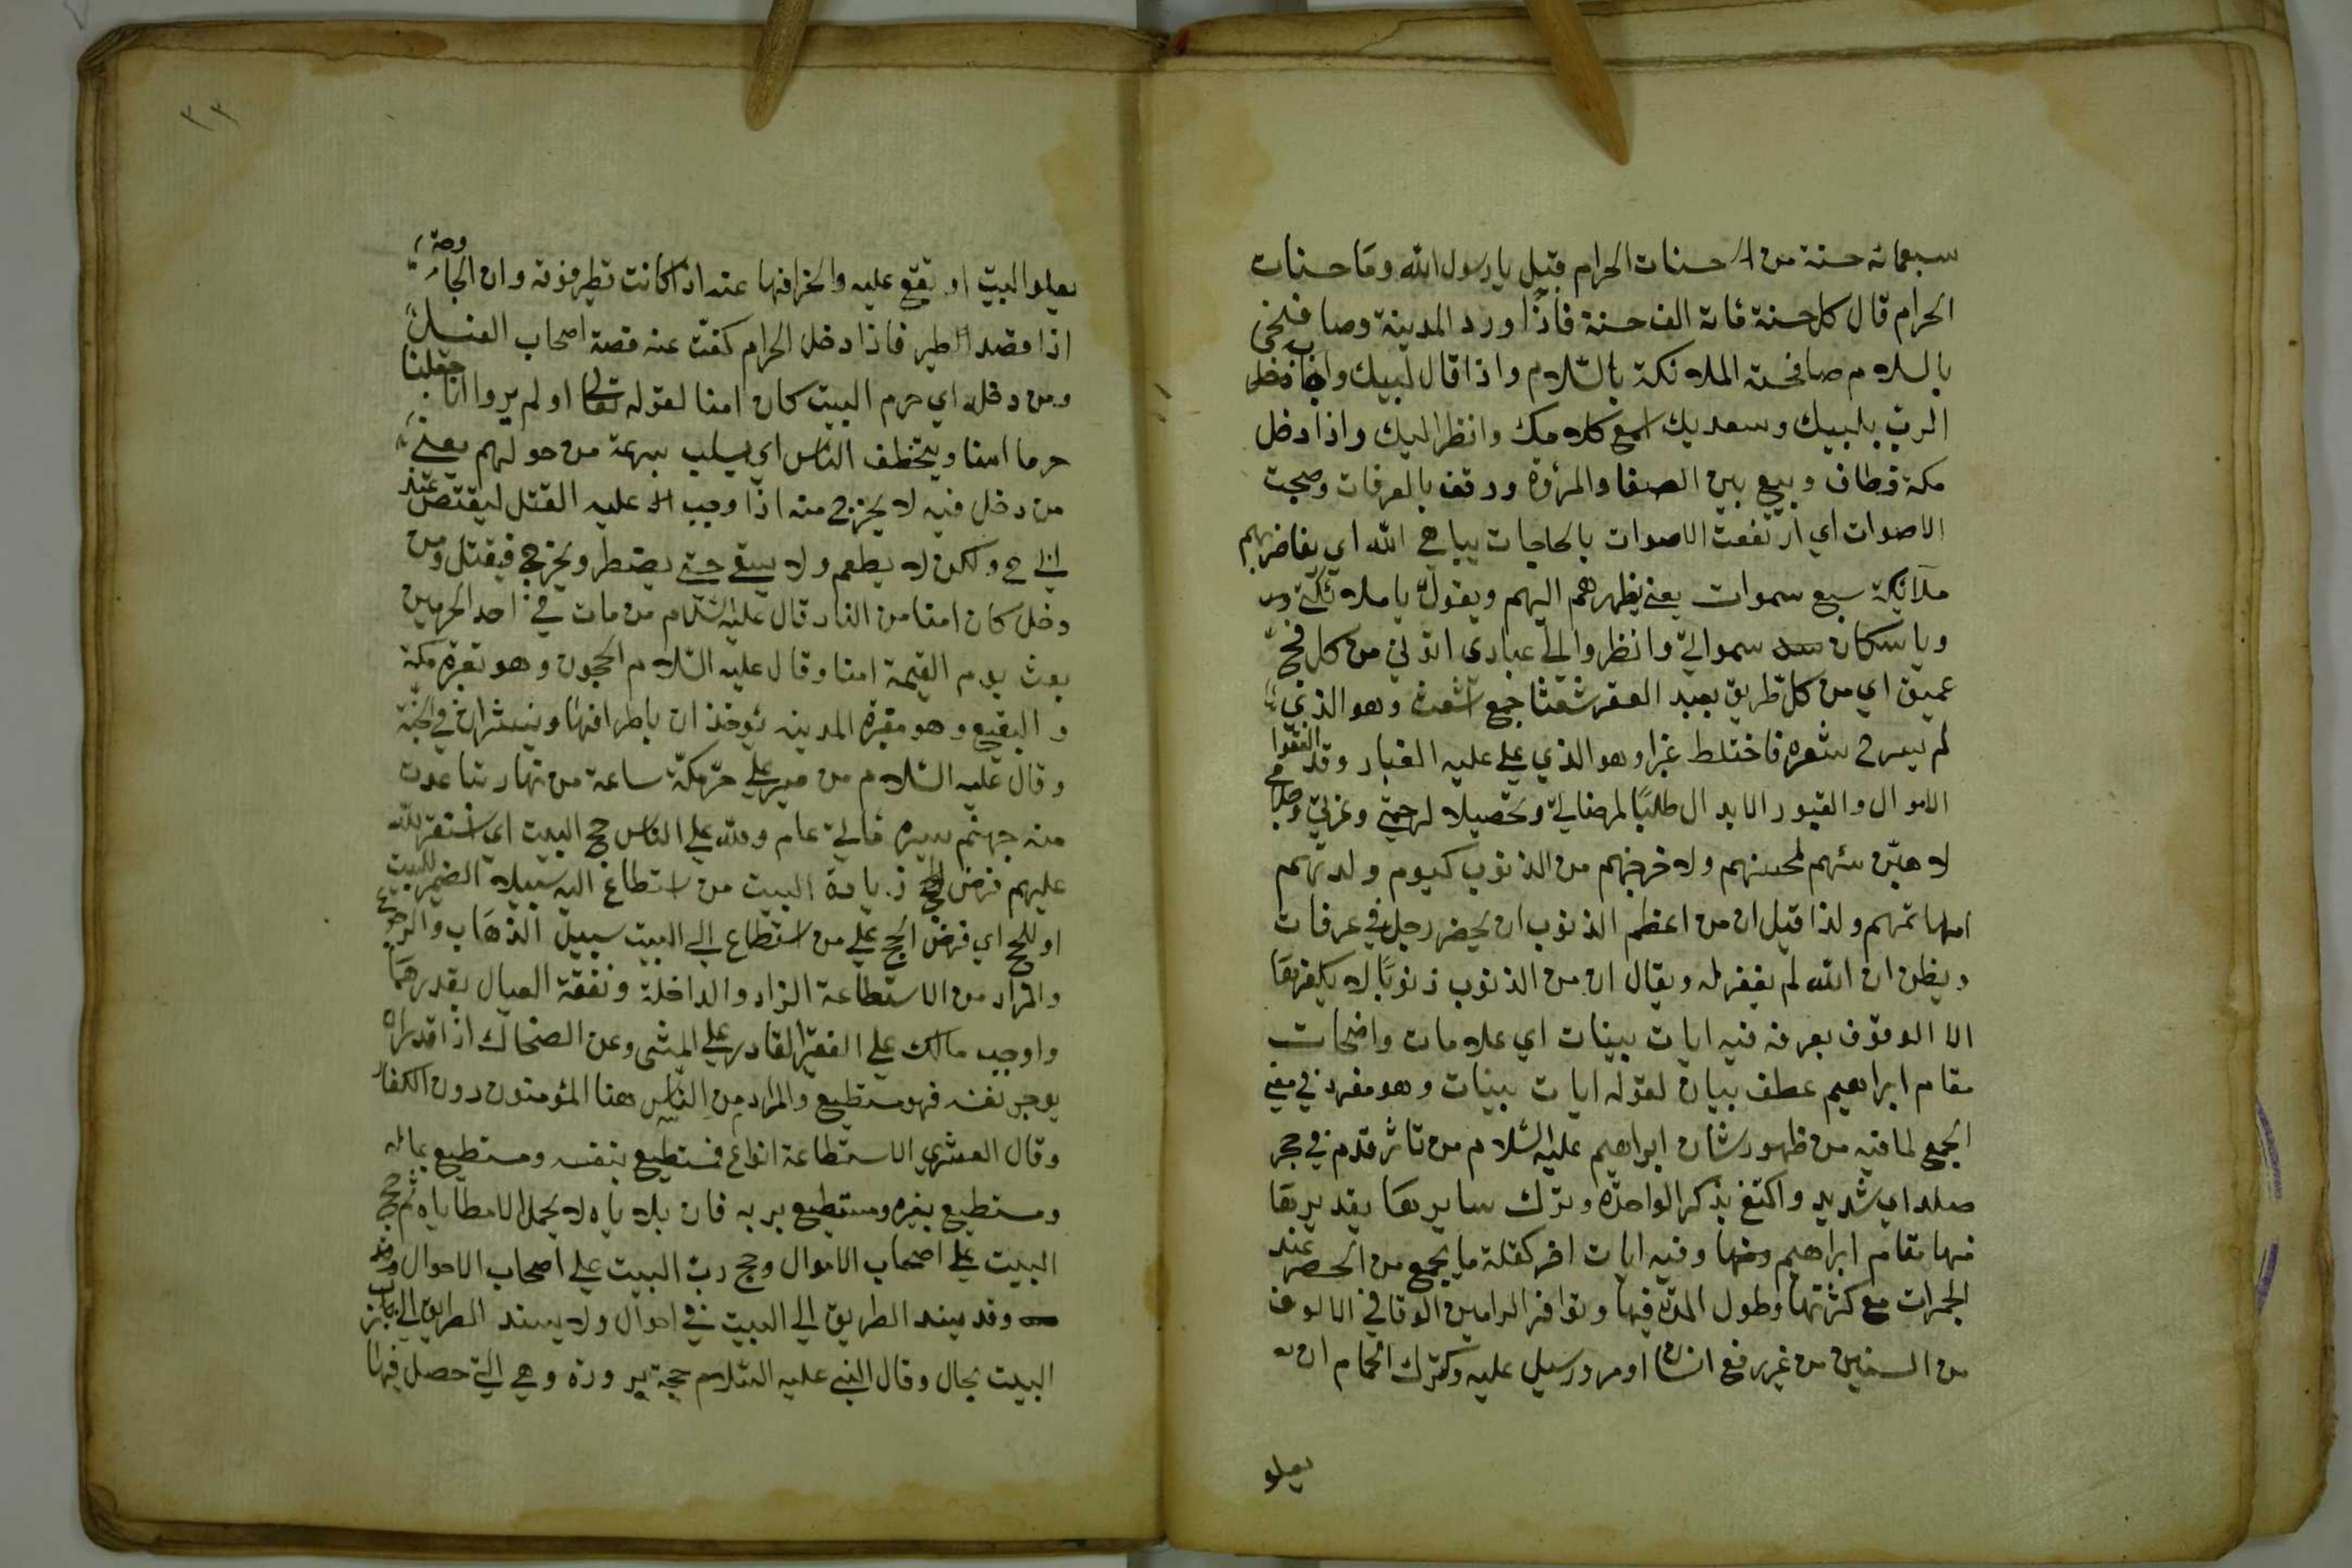 سبعمائة حسنة من حسنات الحرام قيل يا رسول الله وما حسنات
الحرام قال كل حسنة مائة الف حسنة فاذا ورد المدينة وصافحني
بالسلام صافحته الملائكة بالسلام واذا قال لبيك
الرب بلبيك وسعديك اسمع كلامك وانظر اليك واذا دخل
مكة وطاف وبيع بين الصفا والمروة ووقف بالعرفات وضجت
الاصوات اي ارتفعت الاصوات بالحاجات يباهي الله اي يفاخر بهم
ملائكة سبع سموات يعني يظهرهم اليهم ويقول يا ملائكتي
ويا سكان سمواتي وانظروا الى عبادي اتوني من كل فج
عميق اي من كل طريق بعيد شعثا جمع اشعث وهو الذي
لم يسرح شعره فاختلط غبرا وهو الذي على عليه الغبار وقد انفقوا
الاموال الابدال طلبا لمرضاتي وتحصيلا لرحمتي وعزتي وجلالي
لاهبن مسئهم لمحسنهم ولاخرجنهم من الذنوب كيوم ولدتهم
امهاتهم ولذا قيل ان من اعظم الذنوب ان يحضر رجل في عرفات
ويظن ان الله لم يغفر له ويقال ان من الذنوب ذنوبا لا يكفرها
الا الوقوف بعرفة فيه ايات بينات اي علامات واضحات
مقام ابراهيم عطف بيان لقوله ايات بينات وهو مفرد في معنى
الجمع لما فيه من ظهور شان ابراهيم عليه السلام من تاثر قدم في حجر
صلد اي شديد واكتفى بذكر الواحدة وترك سايرها تقديرها
منها مقام ابراهيم وفيه ايات اخر كقلة ما يجمع من الحصى عند
الجمرات مع كثرتها وطول المدة فيها وتوافر الرامين الوفا في الالوف
من السنين من غير رفع انسان او مرور سيل عليه وكترك الحمام ان
يعلو
٣٣
يعلو البيت او تقع عليه وانحرافها عنه اذا كانت تطير فوقه وان الجارحة
اذا قصد الطير فاذا دخل الحرام كفت عنه قصة اصحاب الفيل
ومن دخله اي حرم البيت كان امنا لقوله تعالى اولم يروا انا جعلنا
حرما امنا ويتخطف الناس اي يسلب بسرعة من حولهم يعني
من دخل فيه لا يخرج منه اذا وجب عليه القتل ليقتص عند
ولكن لا يطعم ولا يسقى حتى يضطر ويخرج فيقتل ومن
دخل كان امنا من النار قال عليه السلام من مات في احد الحرمين
بعث يوم القيمة امنا وقال عليه السلام الحجون وهو مقبرة مكة
والبقيع وهو مقبرة المدينة يؤخذان باطرافها وينشران في الجنة
وقال عليه السلام من صبر على حر مكة ساعة من نهار تباعدت
منه جهنم مسيرة مائتي عام ولله على الناس حج البيت اي استقر لله
عليهم فرض الحج زيادة البيت من استطاع اليه سبيلا الضمير للبيت
او للحج اي فرض الحج على من استطاع الى البيت سبيل الذهاب والرجوع
والمراد من الاستطاعة الزاد والراحلة ونفقة العيال بقدرهما
واوجب مالك على الفقير القادر على المشي وعن الضحاك اذا قدر ان
يوجر نفسه فهو مستطيع والمراد من الناس هنا المؤمنون دون الكفار
وقال القشيري الاستطاعة انواع فمستطيع بنفسه ومستطيع بماله
ومستطيع بغيره ومستطيع بربه فان بلاياه لا يحمل الا مطاياه ثم حج
البيت على اصحاب الاموال وحج رب البيت على اصحاب الاحوال
وقد يسد الطريق الى البيت في احوال ولا يسد الطريق الى رب
البيت بحال وقال النبي عليه السلام حجة مبرورة وهي التي حصل فيها